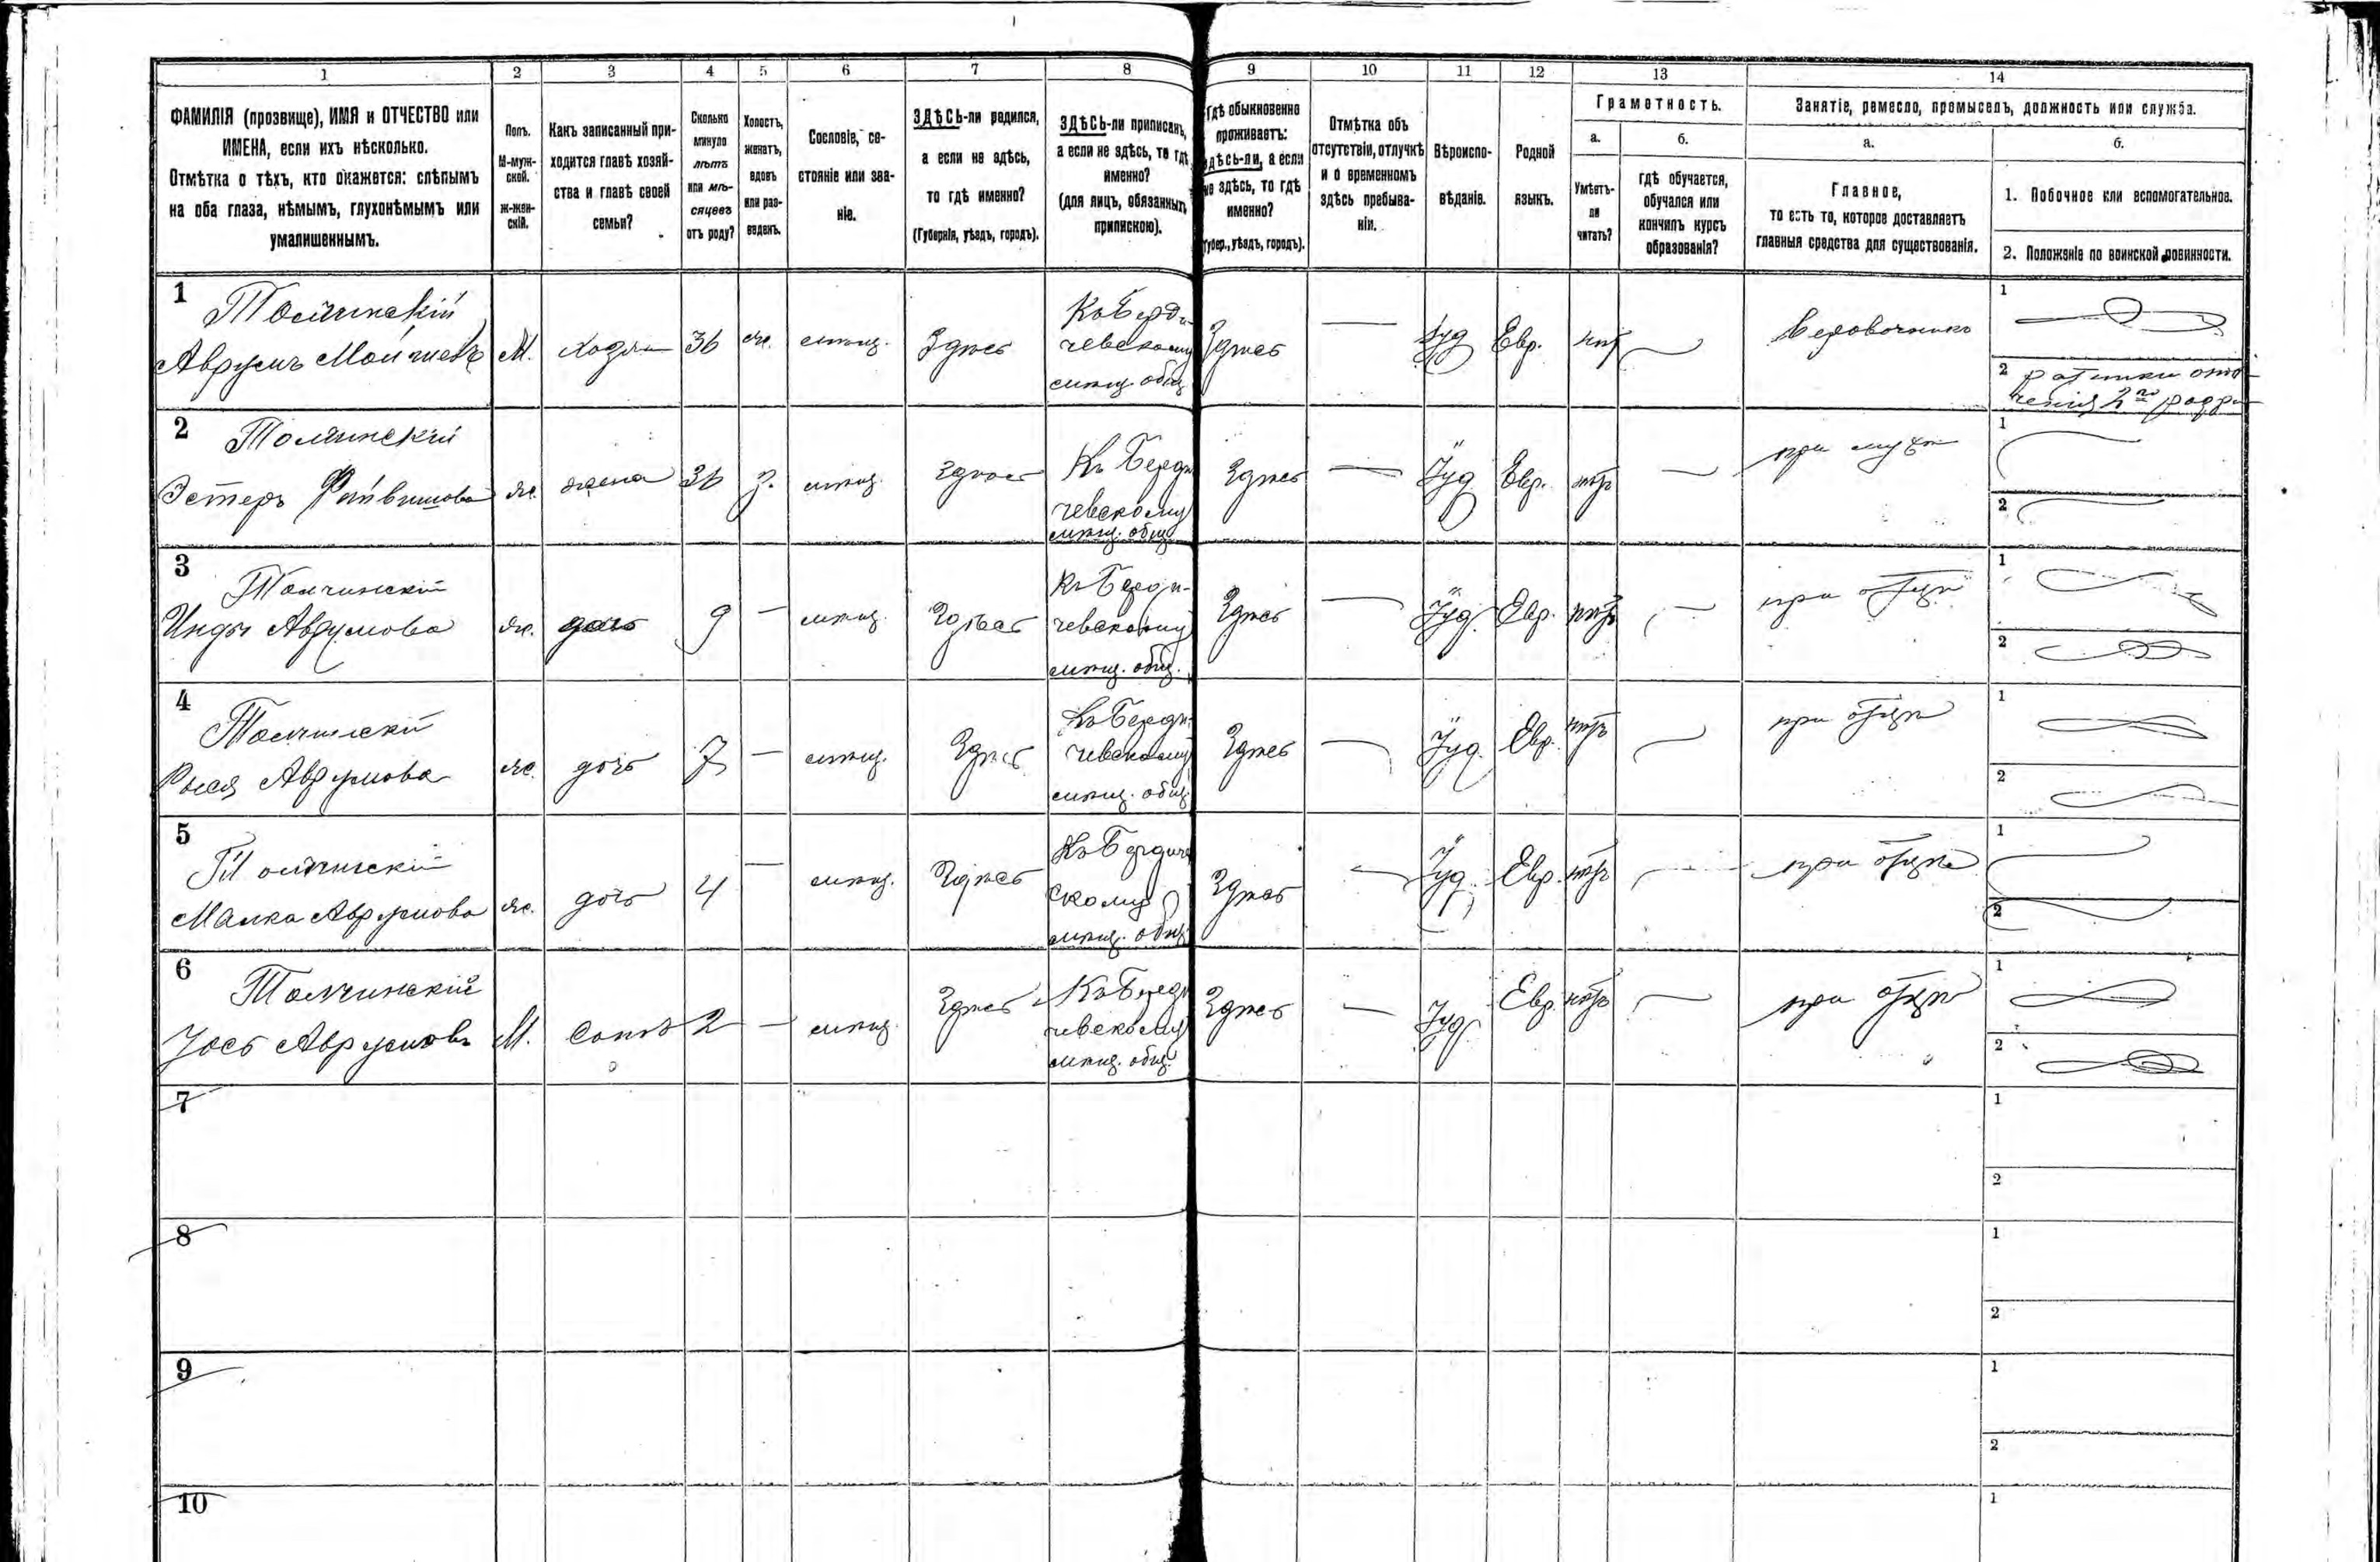 1 2 3 4 5 6 7 8 9 10 11 12 13 14
ФАМИЛІЯ (прозвище), ИМЯ и ОТЧЕСТВО или
ИМЕНА, если ихъ нѣсколько.
Отмѣтка о тѣхъ, кто окажется: слѣпымъ
на оба глаза, нѣмымъ, глухонѣмымъ или
умалишеннымъ.
Полъ.
М-муж-
ской.
ж-жен-
скій.
Какъ записанный при-
ходится главѣ хозяй-
ства и главѣ своей
семьи?
Сколько
минуло
лѣтъ
или мѣ-
сяцевъ
отъ роду?
Холостъ,
женатъ,
вдовъ
или раз-
веденъ.
Сословіе, со-
стояніе или зва-
ніе.
ЗДѢСЬ-ли родился,
а если не здѣсь,
то гдѣ именно?
(Губернія, уѣздъ, городъ).
ЗДѢСЬ-ли приписанъ,
а если не здѣсь, то гдѣ
именно?
(для лицъ, обязанныхъ
припискою).
Гдѣ обыкновенно
проживаетъ:
здѣсь-ли, а если
не здѣсь, то гдѣ
именно?
(Губер., уѣздъ, городъ).
Отмѣтка объ
отсутствіи, отлучкѣ
и о временномъ
здѣсь пребыва-
ніи.
Вѣроиспо-
вѣданіе.
Родной
языкъ.
Грамотность.
а.
Умѣетъ-
ли
читать?
б.
гдѣ обучается,
обучался или
кончилъ курсъ
образованія?
Занятіе, ремесло, промыселъ, должность или служба.
а.
Главное,
то есть то, которое доставляетъ
главныя средства для существованія.
б.
1. Побочное или вспомогательное.
2. Положеніе по воинской повинности.
1
Толчинскій
Аврумъ М.
36
мѣщ.
Здѣсь
Къ Берди
чевскому
мѣщ. общ
Здѣсь
Іуд
Евр.
нѣтъ
Веровочникъ
1
2 ратникъ опол
ченія 2го разря
2
Толчинскій
Эстеръ
же.
жена
36
з.
мѣщ.
Здѣсь
Къ Берди
чевскому
мѣщ. общ
Здѣсь
Іуд
Евр.
нѣтъ
при мужѣ
1
2
3
Толчинскій
Инды Аврумова
же.
дочь
9
мѣщ.
Здѣсь
Къ Берди-
чевскому
мѣщ. общ.
Здѣсь
Іуд.
Евр.
нѣтъ
при отцѣ
1
2
4
Толчинскій
Рыся Аврумова
же.
дочь
7
мѣщ.
Здѣсь
Къ Берди-
чевскому
мѣщ. общ
Здѣсь
Іуд.
Евр.
нѣтъ
при отцѣ
1
2
5
Толчинскій
Малка Аврумова
же.
дочь
4
мѣщ.
Здѣсь
Къ Бердиче
скому
мѣщ. общ
Здѣсь
Іуд.
Евр.
нѣтъ
при отцѣ
1
2
6
Толчинскій
Іось Аврумовъ
М.
Сынъ
2
мѣщ.
Здѣсь
Къ Берди
чевскому
мѣщ. общ.
Здѣсь
Іуд
Евр.
нѣтъ
при отцѣ
1
2
7
1
2
8
1
2
9
1
2
10
1